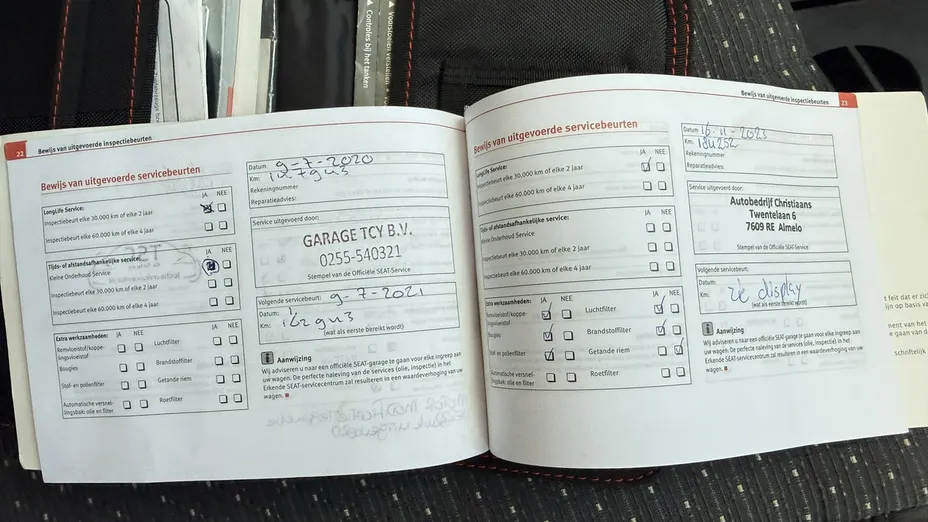 Voorstoelen verstellen
Controles bij het tanken
22
Bewijs van uitgevoerde inspectiebeurten
Bewijs van uitgevoerde servicebeurten
JA NEE
LongLife Service:
Inspectiebeurt elke 30.000 km of elke 2 jaar
Inspectiebeurt elke 60.000 km of elke 4 jaar
Tijds- of afstandsafhankelijke service:
JA NEE
Kleine Onderhoud Service
Inspectiebeurt elke 30.000 km of elke 2 jaar
Inspectiebeurt elke 60.000 km of elke 4 jaar
Extra werkzaamheden:
JA NEE
JA NEE
Remvloeistof/koppelingsvloeistof
Luchtfilter
Bougies
Brandstoffilter
Stof- en pollenfilter
Getande riem
Automatische versnellingsbak: olie en filter
Roetfilter
Datum 9-7-2020
Km:
Rekeningnummer:
Reparatieadvies:
Service uitgevoerd door:
GARAGE TCY B.V.
0255-540321
Stempel van de Officiële SEAT-Service
Volgende servicebeurt:
Datum: 9-7-2021
Km:
(wat als eerste bereikt wordt)
Aanwijzing
Wij adviseren u naar een officiële SEAT-garage te gaan voor elke ingreep aan
uw wagen. De perfecte naleving van de services (olie, inspectie) in het
Erkende SEAT-servicecentrum zal resulteren in een waardeverhoging van uw
wagen.
Bewijs van uitgevoerde inspectiebeurten
23
Bewijs van uitgevoerde servicebeurten
JA NEE
LongLife Service:
Inspectiebeurt elke 30.000 km of elke 2 jaar
Inspectiebeurt elke 60.000 km of elke 4 jaar
Tijds- of afstandsafhankelijke service:
JA NEE
Kleine Onderhoud Service
Inspectiebeurt elke 30.000 km of elke 2 jaar
Inspectiebeurt elke 60.000 km of elke 4 jaar
Extra werkzaamheden:
JA NEE
JA NEE
Remvloeistof/koppelingsvloeistof
Luchtfilter
Bougies
Brandstoffilter
Stof- en pollenfilter
Getande riem
Automatische versnellingsbak: olie en filter
Roetfilter
Datum 16-11-2023
Km:
Rekeningnummer:
Reparatieadvies:
Service uitgevoerd door:
Autobedrijf Christiaans
Twentelaan 6
7609 RE Almelo
Stempel van de Officiële SEAT-Service
Volgende servicebeurt:
Datum:
Km: zie display
(wat als eerste bereikt wordt)
Aanwijzing
Wij adviseren u naar een officiële SEAT-garage te gaan voor elke ingreep aan
uw wagen. De perfecte naleving van de services (olie, inspectie) in het
Erkende SEAT-servicecentrum zal resulteren in een waardeverhoging van uw
wagen.